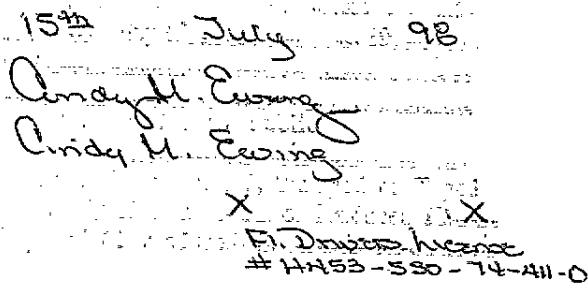 15th July 98
Cindy M. Ewing
Cindy M. Ewing
X X
Fl. Drivers License
# HH53-550-74-411-0